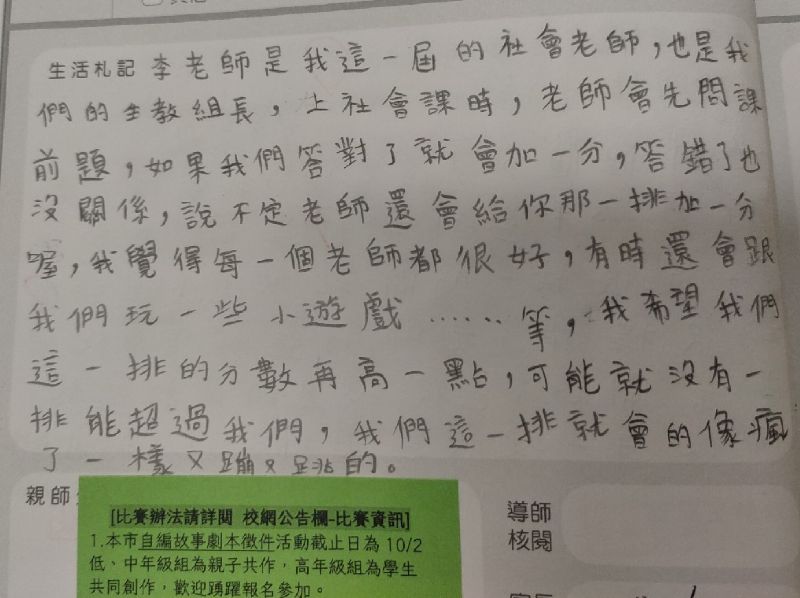 生活札記 李老師是我這一屆的社會老師，也是我
們的生教組長，上社會課時，老師會先問課
前題，如果我們答對了就會加一分，答錯了也
沒關係，說不定老師還會給你那一排加一分
喔，我覺得每一個老師都很好，有時還會跟
我們玩一些小遊戲……等，我希望我們
這一排的分數再高一點，可能就沒有一
排能超過我們，我們這一排就會的像瘋
了一樣又蹦又跳的。
親師
[比賽辦法請詳閱 校網公告欄-比賽資訊]
1.本市自編故事劇本徵件活動截止日為 10/2
低、中年級組為親子共作，高年級組為學生
共同創作，歡迎踴躍報名參加。
導師
核閱